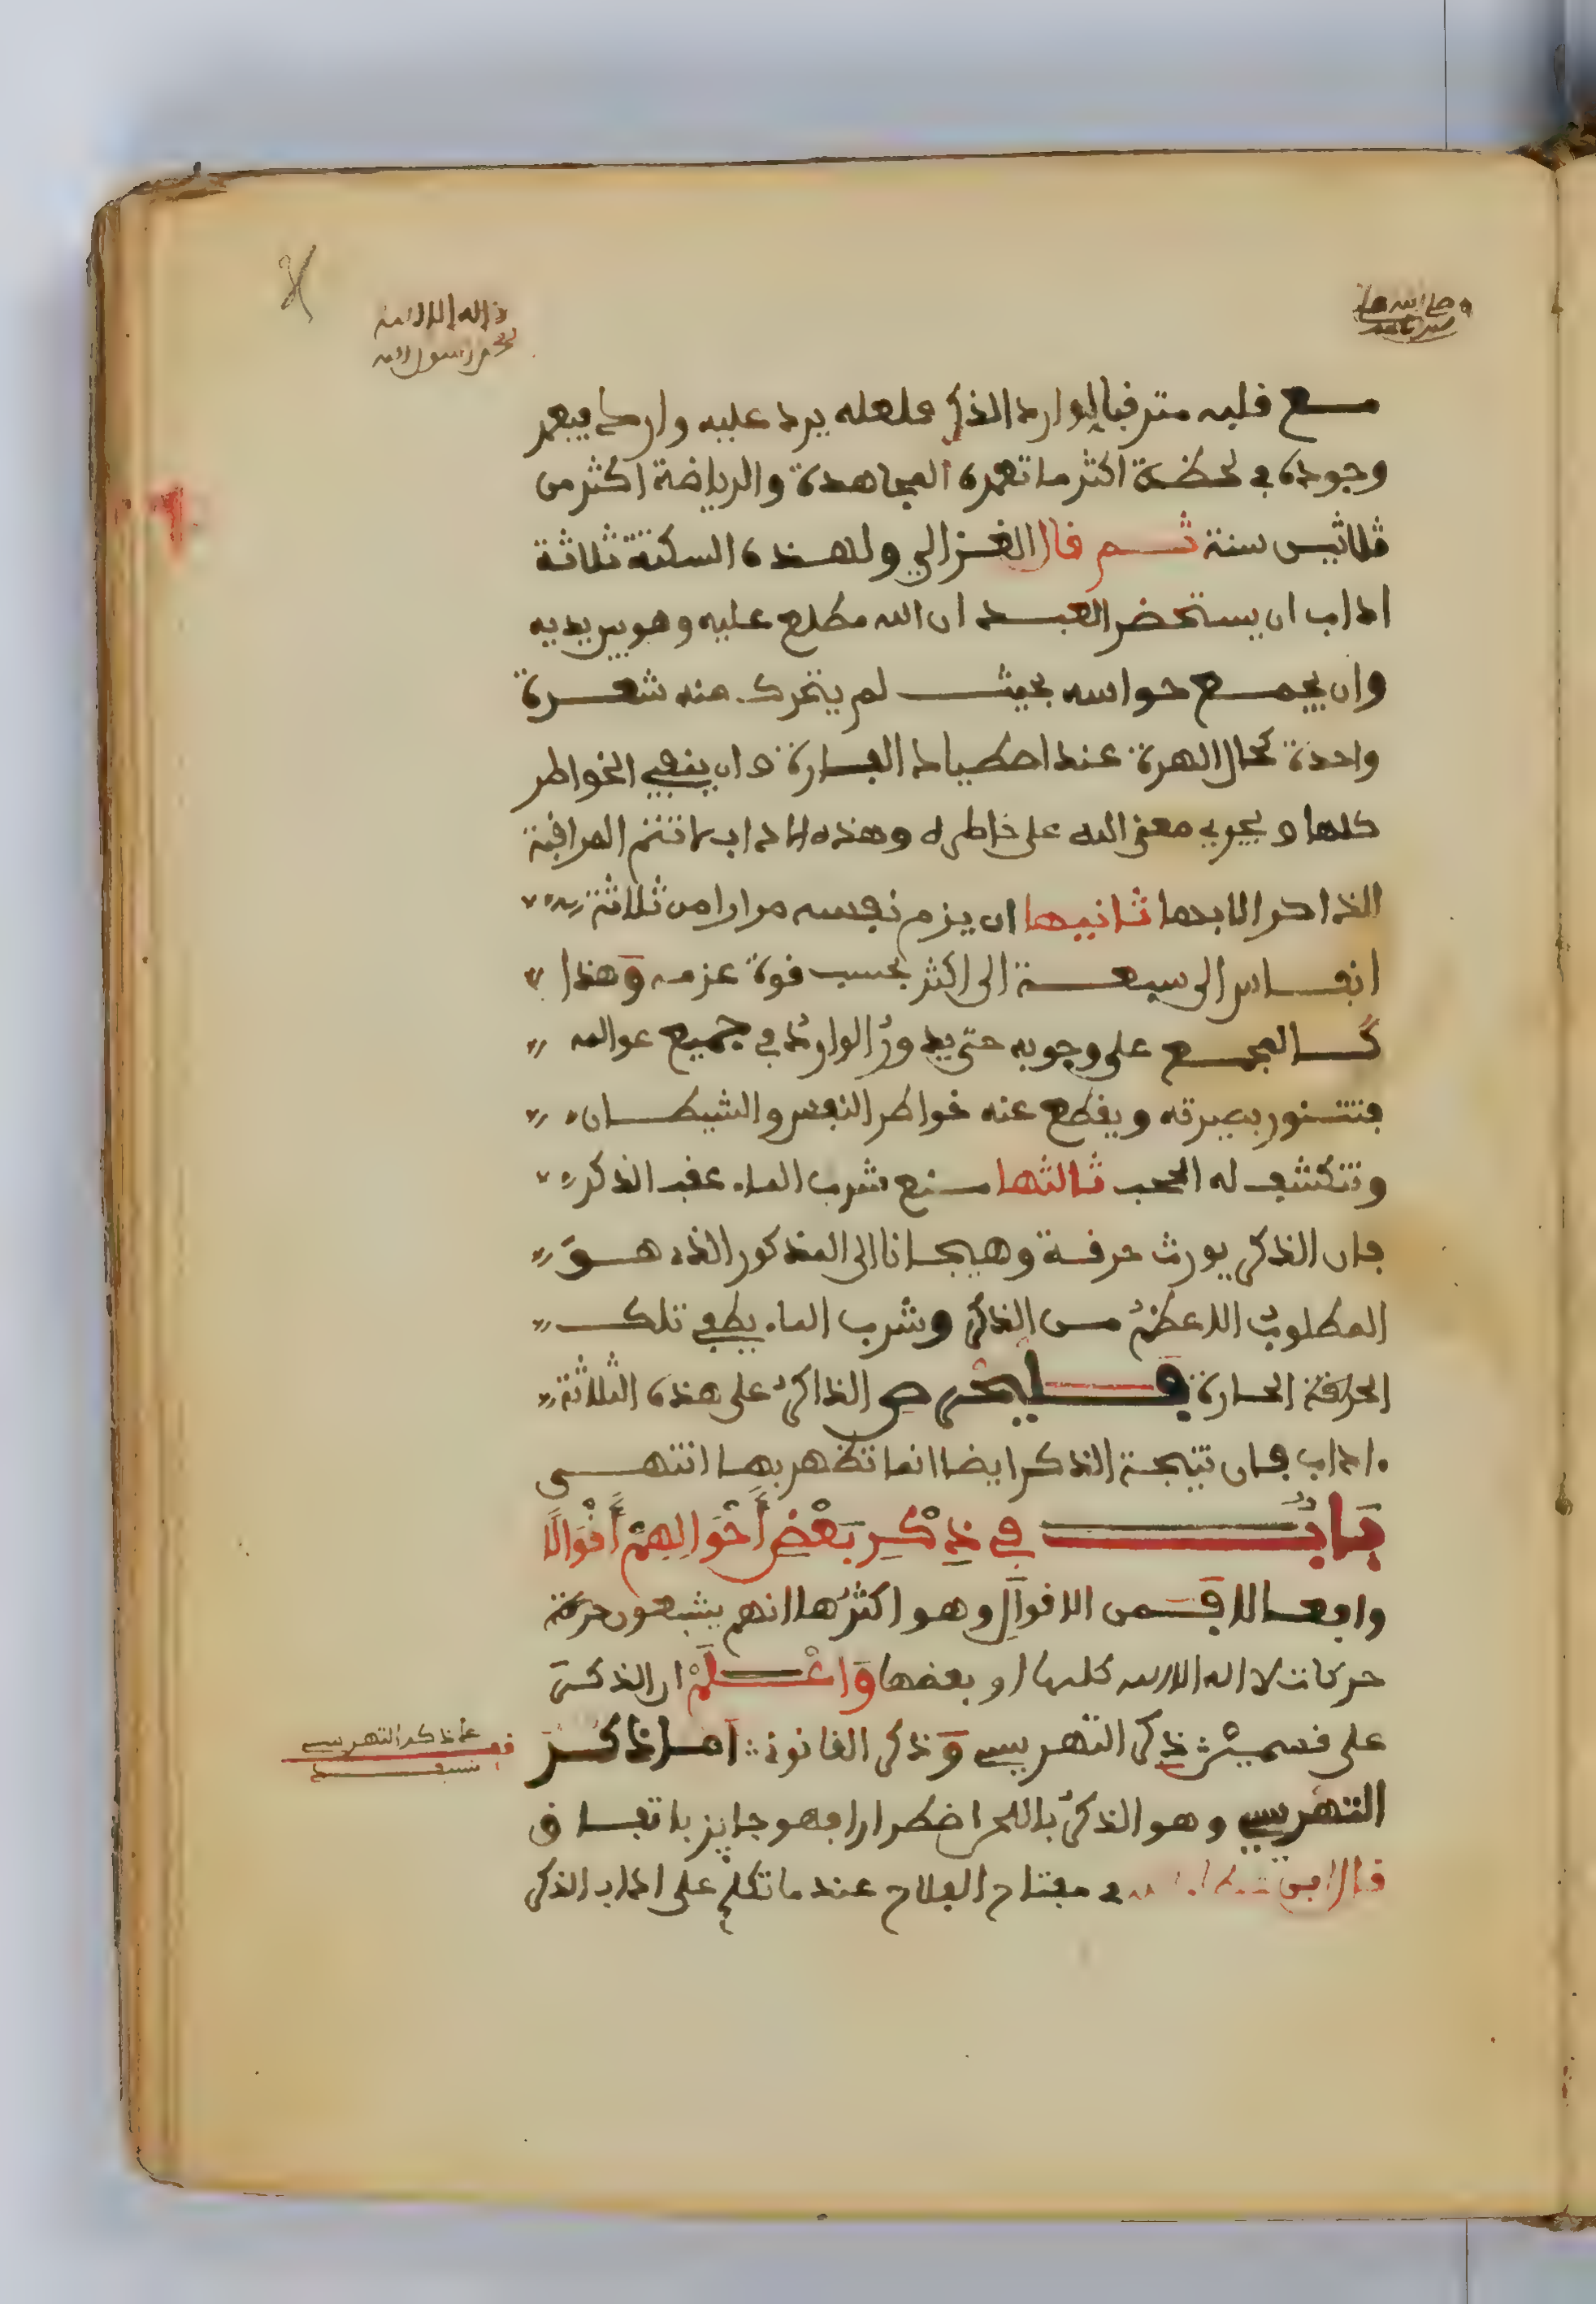 لا اله الا الله
محمد رسول الله
مع قلبه مترقبا لوارد الذكر فلعله يرد عليه وارد فيعمر
وجوده في لحظة اكثر ما تعمره المجاهدة والرياضة اكثر من
ثلاثين سنة ثم قال الغزالي ولهذه السكتة ثلاثة
اداب ان يستحضر العبد ان الله مطلع عليه وهو بين يديه
وان يجمع حواسه بحيث لم يتحرك منه شعرة
واحدة كحال الهرة عند اصطياد الفارة وان ينفي الخواطر
كلها ويجري معنى الله على خاطره وهذه الاداب لا تتم المراقبة
الذاكر الا بها ثانيها ان يزم نفسه مرارا من ثلاثة
انفاس الى سبعة الى اكثر بحسب قوة عزمه وَهذا
كالمجمع على وجوبه حتى يدورُ الواردُ في جميع عوالمه
فتتنور بصيرته ويقطع عنه خواطر النفس والشيطان
وتنكشف له الحجب ثالثها منع شرب الماء عقب الذكر
فان الذكر يورث حرقة وهيجانا الى المذكور الذي هوَ
المطلوبُ الاعظمُ من الذكر وشرب الماء يطفي تلك
الحرقة الحارة فَليحرص الذاكرُ على هذه الثلاثة
اداب فان نتيجة الذكر ايضا انما تظهر بها انتهى
بَابُ في ذِكْرِ بَعْضِ أَحْوَالِهِمْ أَقْوَالًا
وافعالا فَمن الاقوال وهو اكثرُها انهم يشبعون حركة
حركات لا اله الا الله كلها او بعضها وَاعْلَمْ ان الذكرَ
على قسميْن ذكر التهريس وَذكر القانون أما ذكرُ
التهريس وهو الذكرُ باللحن اضطرارا فهو جايز باتفاق
قال ابن في مفتاح الفلاح عند ما تكلم على اداب الذكر
على ذكر التهريس